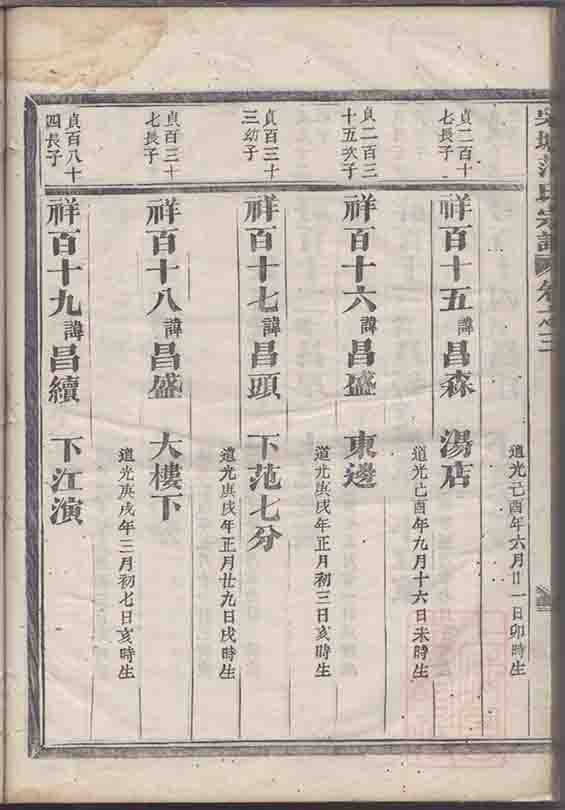 范氏宗譜
道光己酉年六月廿一日卯時生
貞二百十
七長子
祥百十五諱昌森 湯店
道光己酉年九月十六日未時生
貞二百三
十五次子
祥百十六諱昌盛 東邊
道光庚戌年正月初三日亥時生
貞百三十
三幼子
祥百十七諱昌頭 下范七分
道光庚戌年正月廿九日戌時生
貞百三十
七長子
祥百十八諱昌盛 大樓下
道光庚戌年三月初七日亥時生
貞百八十
四長子
祥百十九諱昌續 下江演